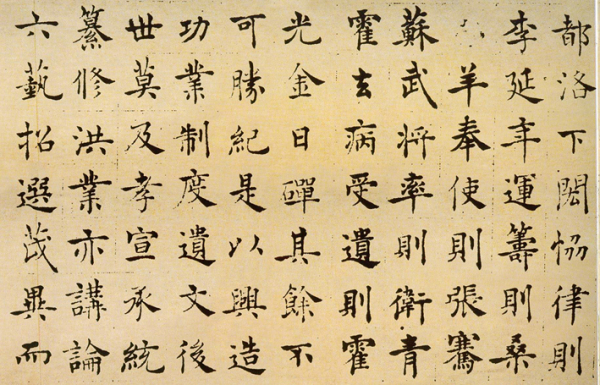 都洛下閎恊律則
李延年運籌則桑
羊奉使則張騫
蘇武將率則衛青
霍去病受遺則霍
光金日磾其餘不
可勝紀是以興造
功業制度遺文後
世莫及孝宣承統
纂修洪業亦講論
六藝招選茂異而